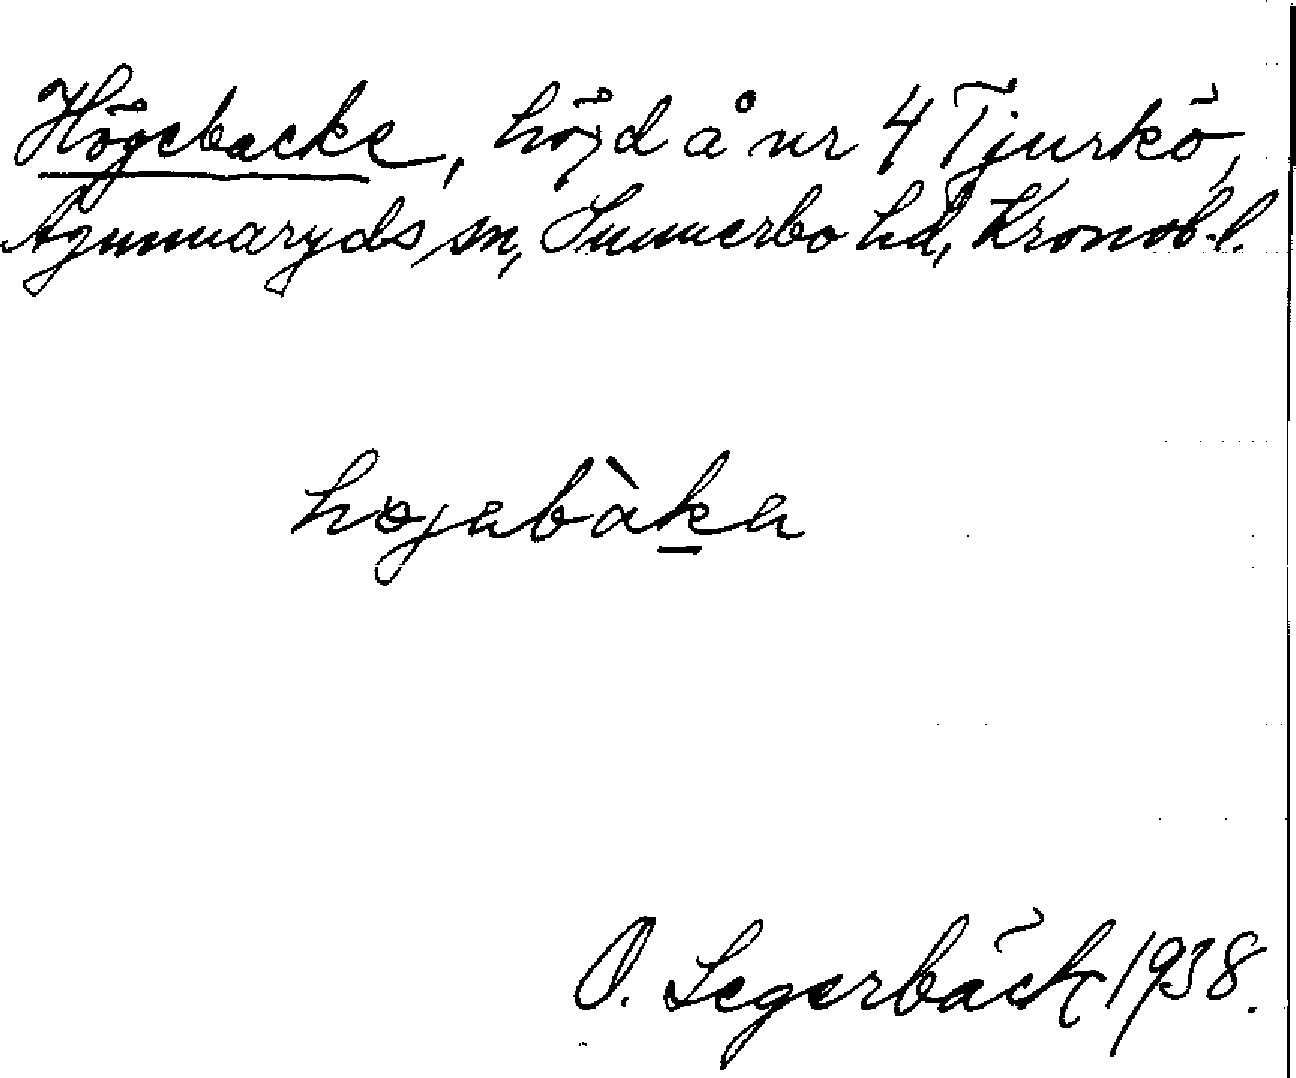 Högebacke, höjd å nr 4 Tjurkö,
Agunnaryds sn, Sunnerbo hd, Kronob.l.
højabàka
O. Segerbäck 1938.